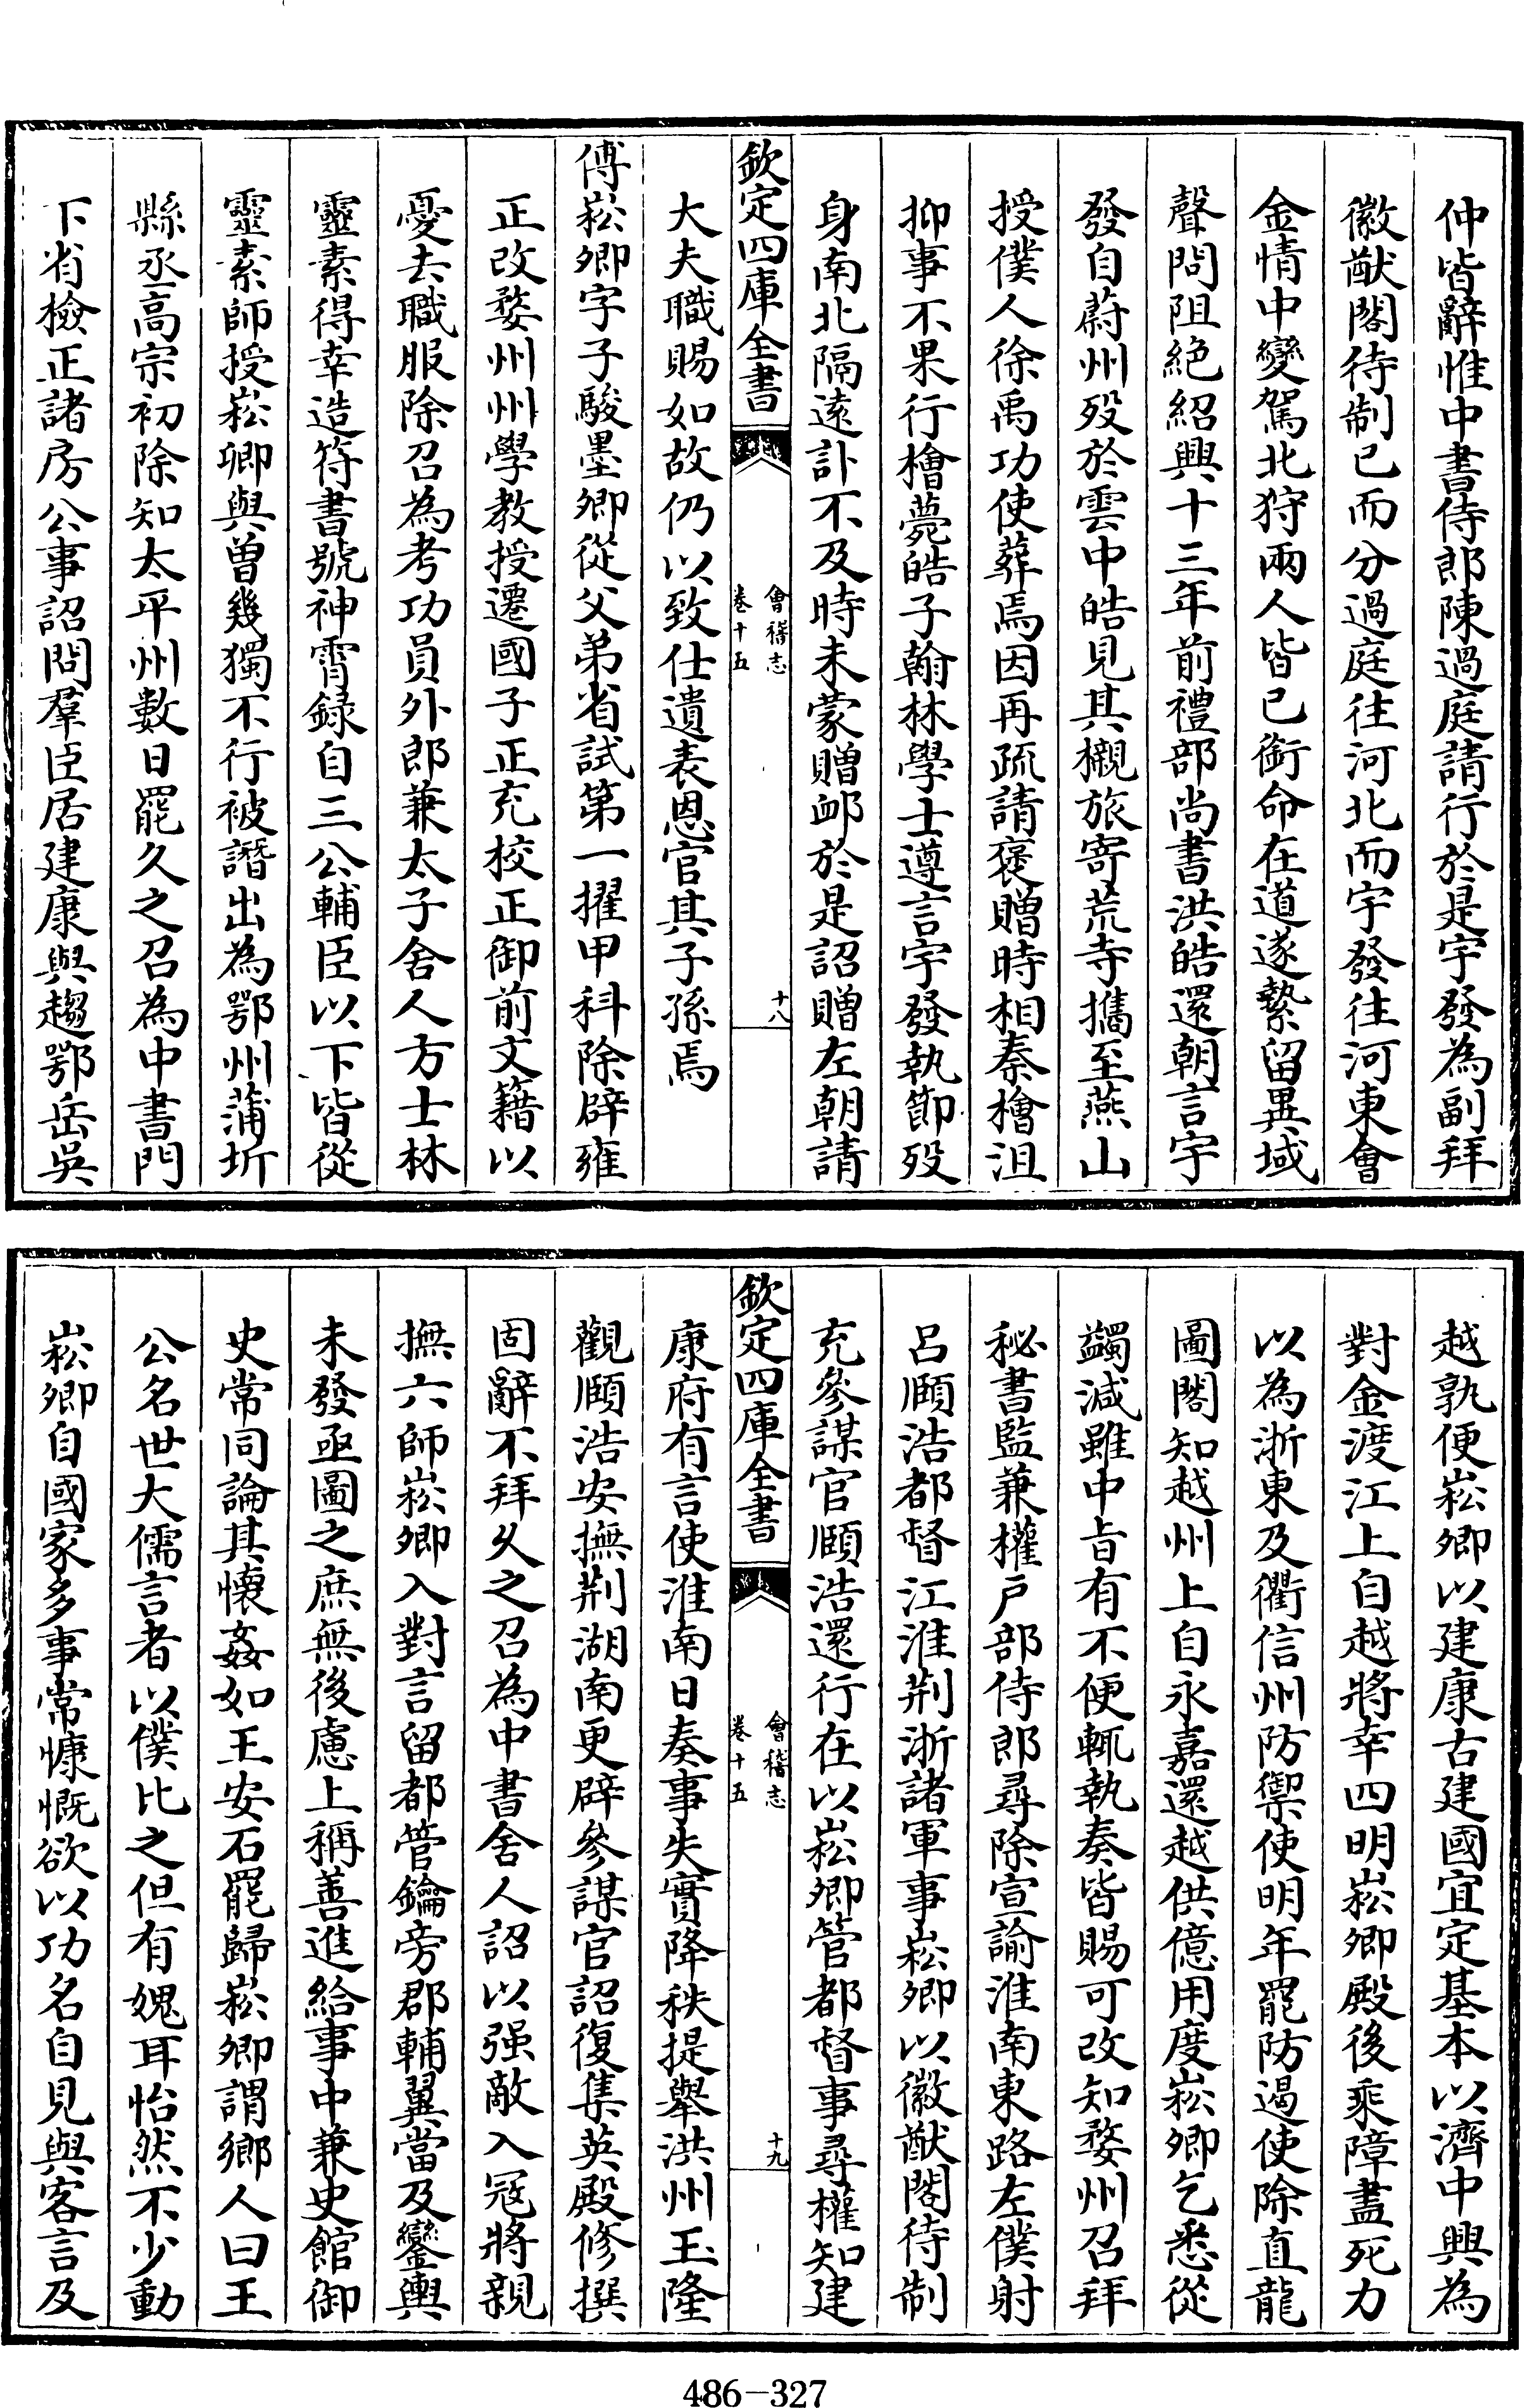 仲皆辭惟中書侍郎陳過庭請行於是宇發為副拜
徽猷閣待制已而分過庭往河北而宇發往河東會
金情中變駕北狩兩人皆已銜命在道遂縶留異域
聲問阻絶紹興十三年前禮部尚書洪皓還朝言宇
發自蔚州歿於雲中皓見其櫬旅寄荒寺攜至燕山
授僕人徐禹功使葬焉因再疏請褒贈時相秦檜沮
抑事不果行檜薨皓子翰林學士遵言宇發執節歿
身南北隔遠訃不及時未蒙贈䘏於是詔贈左朝請
欽定四庫全書
會稽志
卷十五
十八
大夫職賜如故仍以致仕遺表恩官其子孫焉
傅崧卿字子駿墨卿從父弟省試第一擢甲科除辟雍
正改婺州州學教授遷國子正充校正御前文籍以
憂去職服除召為考功員外郎兼太子舍人方士林
靈素得幸造符書號神霄録自三公輔臣以下皆從
靈素師授崧卿與曾幾獨不行被譖出為鄂州蒲圻
縣丞高宗初除知太平州數日罷久之召為中書門
下省檢正諸房公事詔問羣臣居建康與趨鄂岳吳
越孰便崧卿以建康古建國宜定基本以濟中興為
對金渡江上自越將幸四明崧卿殿後乘障盡死力
以為浙東及衢信州防禦使明年罷防遏使除直龍
圖閣知越州上自永嘉還越供億用度崧卿乞悉從
蠲減雖中旨有不便輒執奏皆賜可改知婺州召拜
秘書監兼權戸部侍郎尋除宣諭淮南東路左僕射
呂頤浩都督江淮荆浙諸軍事崧卿以徽猷閣待制
充參謀官頤浩還行在以崧卿管都督事尋權知建
欽定四庫全書
會稽志
卷十五
十九
康府有言使淮南日奏事失實降秩提舉洪州玉隆
觀頤浩安撫荆湖南更辟參謀官詔復集英殿修撰
固辭不拜久之召為中書舍人詔以强敵入冦將親
撫六師崧卿入對言留都管鑰旁郡輔翼當及鑾輿
未發亟圖之庶無後慮上稱善進給事中兼史館御
史常同論其懐姦如王安石罷歸崧卿謂鄉人曰王
公名世大儒言者以僕比之但有媿耳怡然不少動
崧卿自國家多事常慷慨欲以功名自見與客言及
486-327